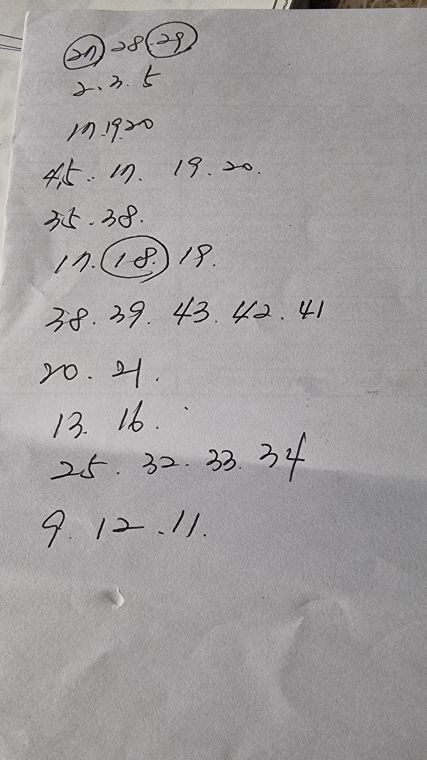 27. 28. 29
2. 3. 5
17. 19. 20
4,5. 17. 19. 20.
35. 38.
17. 18. 19.
38. 39. 43. 42. 41
20. 21.
13. 16.
25. 32. 33. 34
9. 12. 11.